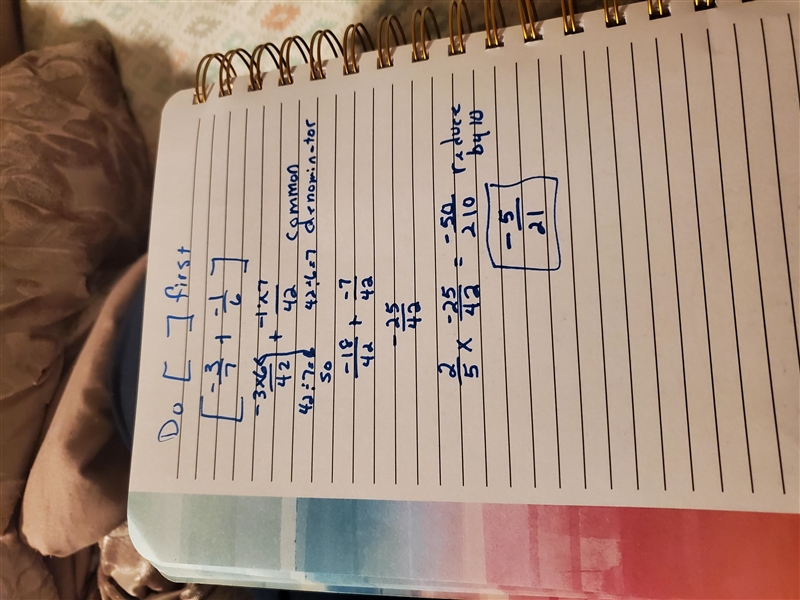 Do [ ] first
[-3/7 + -1/6]
-3x6/42 + -1x7/42 common denominator
42÷7=6 42÷6=7
so
-18/42 + -7/42
-25/42
2/5 x -25/42 = -50/210 reduce by 10
-5/21